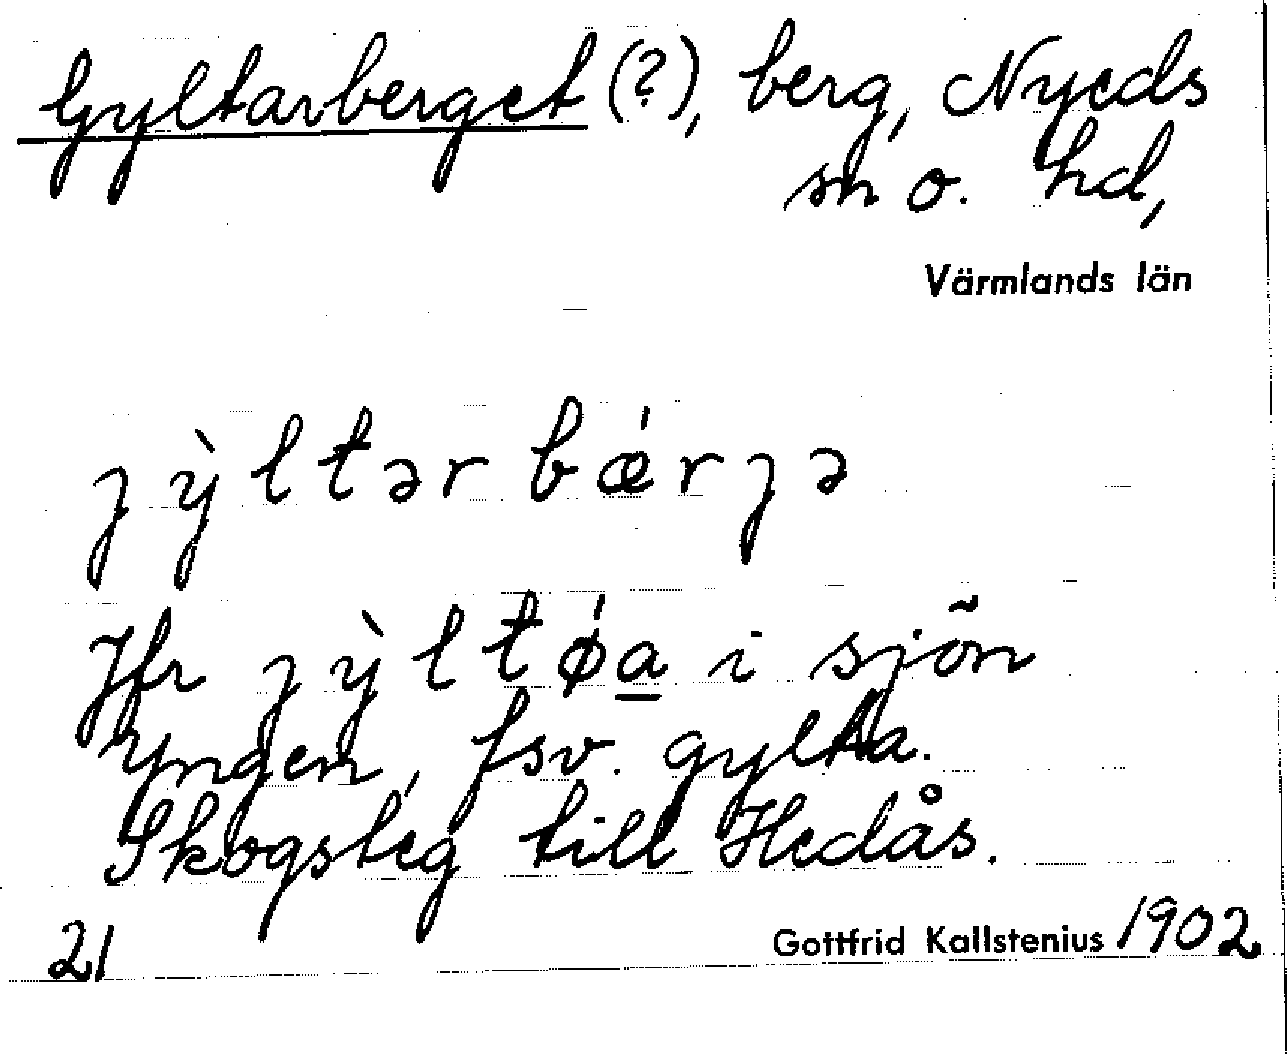 Gyltarberget (?), berg, Nyeds
sn o. hd,
Värmlands län
ȷỳltər bǽrȷə
Jfr ȷỳltǿa i sjön
Yngen, fsv. gylta.
Skogsteg till Hedås.
21 Gottfrid Kallstenius 1902